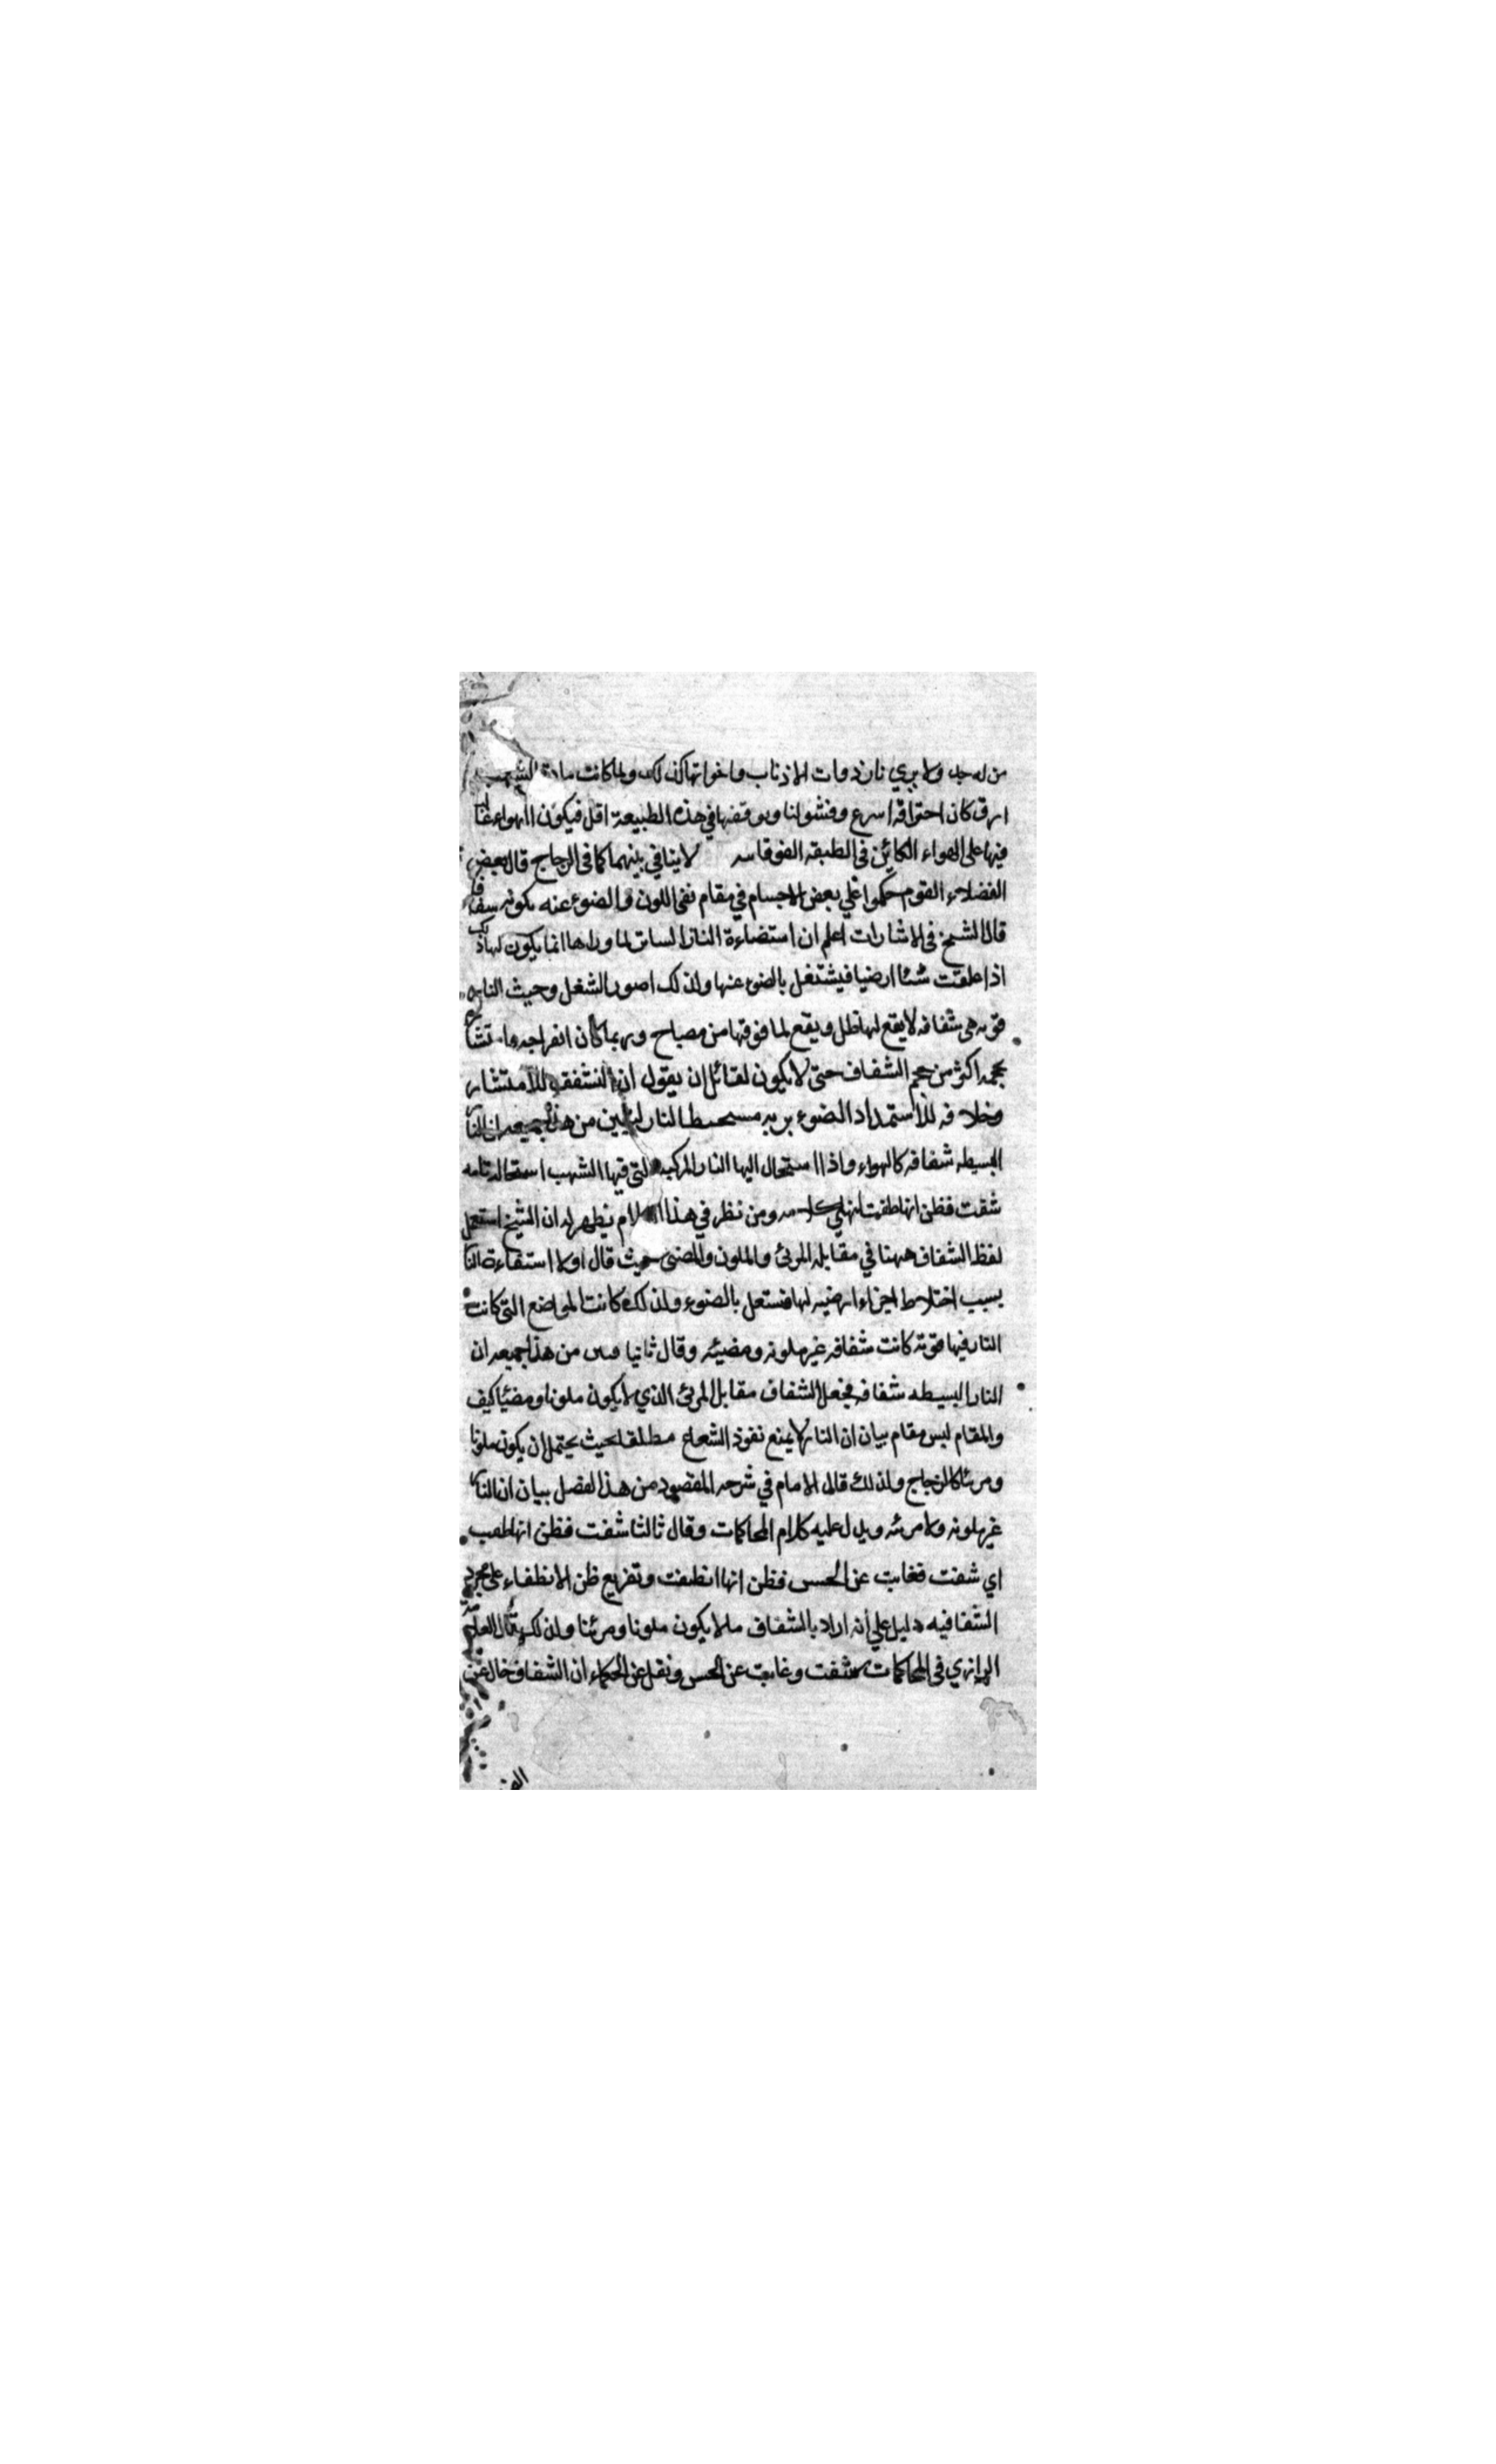 من له جل ولا يري نار ذوات الاذناب واخواتها كذلك ولما كانت مادة الشهب
ارق كان احتراقه اسرع وفنشولنا وبوقفها في هذه الطبيعة اقل فيكون الهواء غا
فيها علي الهواء الكائن في الطبقه الفوقاسه لاينافي بينهما كما في الزجاج قال بعض
الفضلاء القوم حكموا علي بعض الاجسام في مقام نفي اللون والضوء عنه بكونه شفا
قال الشيخ في الاشارات اعلم ان استضاءة النار الساتر لما وراءها انما يكون لها ذلك
اذا علقت شئا ارضيا فيشتغل بالضوء عنها ولذلك اصور الشغل وحيث النار
قويه هي شفافه لايقع لها ظل ويقع لما فوقها من مصباح وربما كان انفراجه وا
بحجمه اكثر من حجم الشفاف حتى لايكون لقائل ان يقول ان للانتشار
وخلافه للاستمداد الضوء النار من هذا جميعه ان النار
البسيطه شفافه كالهواء واذا استحال اليها النار المركبه التي فيها الشهب استحاله تامه
شفت فظن انها طفت ومن نظر في هذا الكلام يظهر له ان الشيخ استعمل
لفظ الشفاف ههنا في مقابله المرئ والملون والمضئ حيث قال اولا استضاءة النار
بسبب اختلاط اجزاء ارضيه لها فتستعل بالضوء ولذلك كانت المواضع التي كانت
النار فيها قوته كانت شفافه غير ملونه ومضيئه وقال ثانيا من هذا جميعه ان
النار البسيطه شفافه فجعل الشفاف مقابل المرئ الذي لايكون ملونا ومضيا كيف
والمقام ليس مقام بيان ان النار لايمنع نفوذ الشعاع مطلقا بحيث يحتمل ان يكون ملونا
ومرئا كالزجاج ولذلك قال الامام في شرحه المقصود من هذا الفصل بيان ان النار
غير ملونه ولا مرئه ويدل عليه كلام المحاكمات وقال ثالثا شفت فظن انها طفت
اي شفت فغابت عن الحس فظن انها انطفت وتفريع ظن الانطفاء علي مجرد
الشفافيه دليل علي انه اراد بالشفاف ما لا يكون ملونا ومرئنا ولذلك قال العلامه
الرازي في المحاكمات شفت وغابت عن الحس ونقل عن الحكماء ان الشفاف خال عن